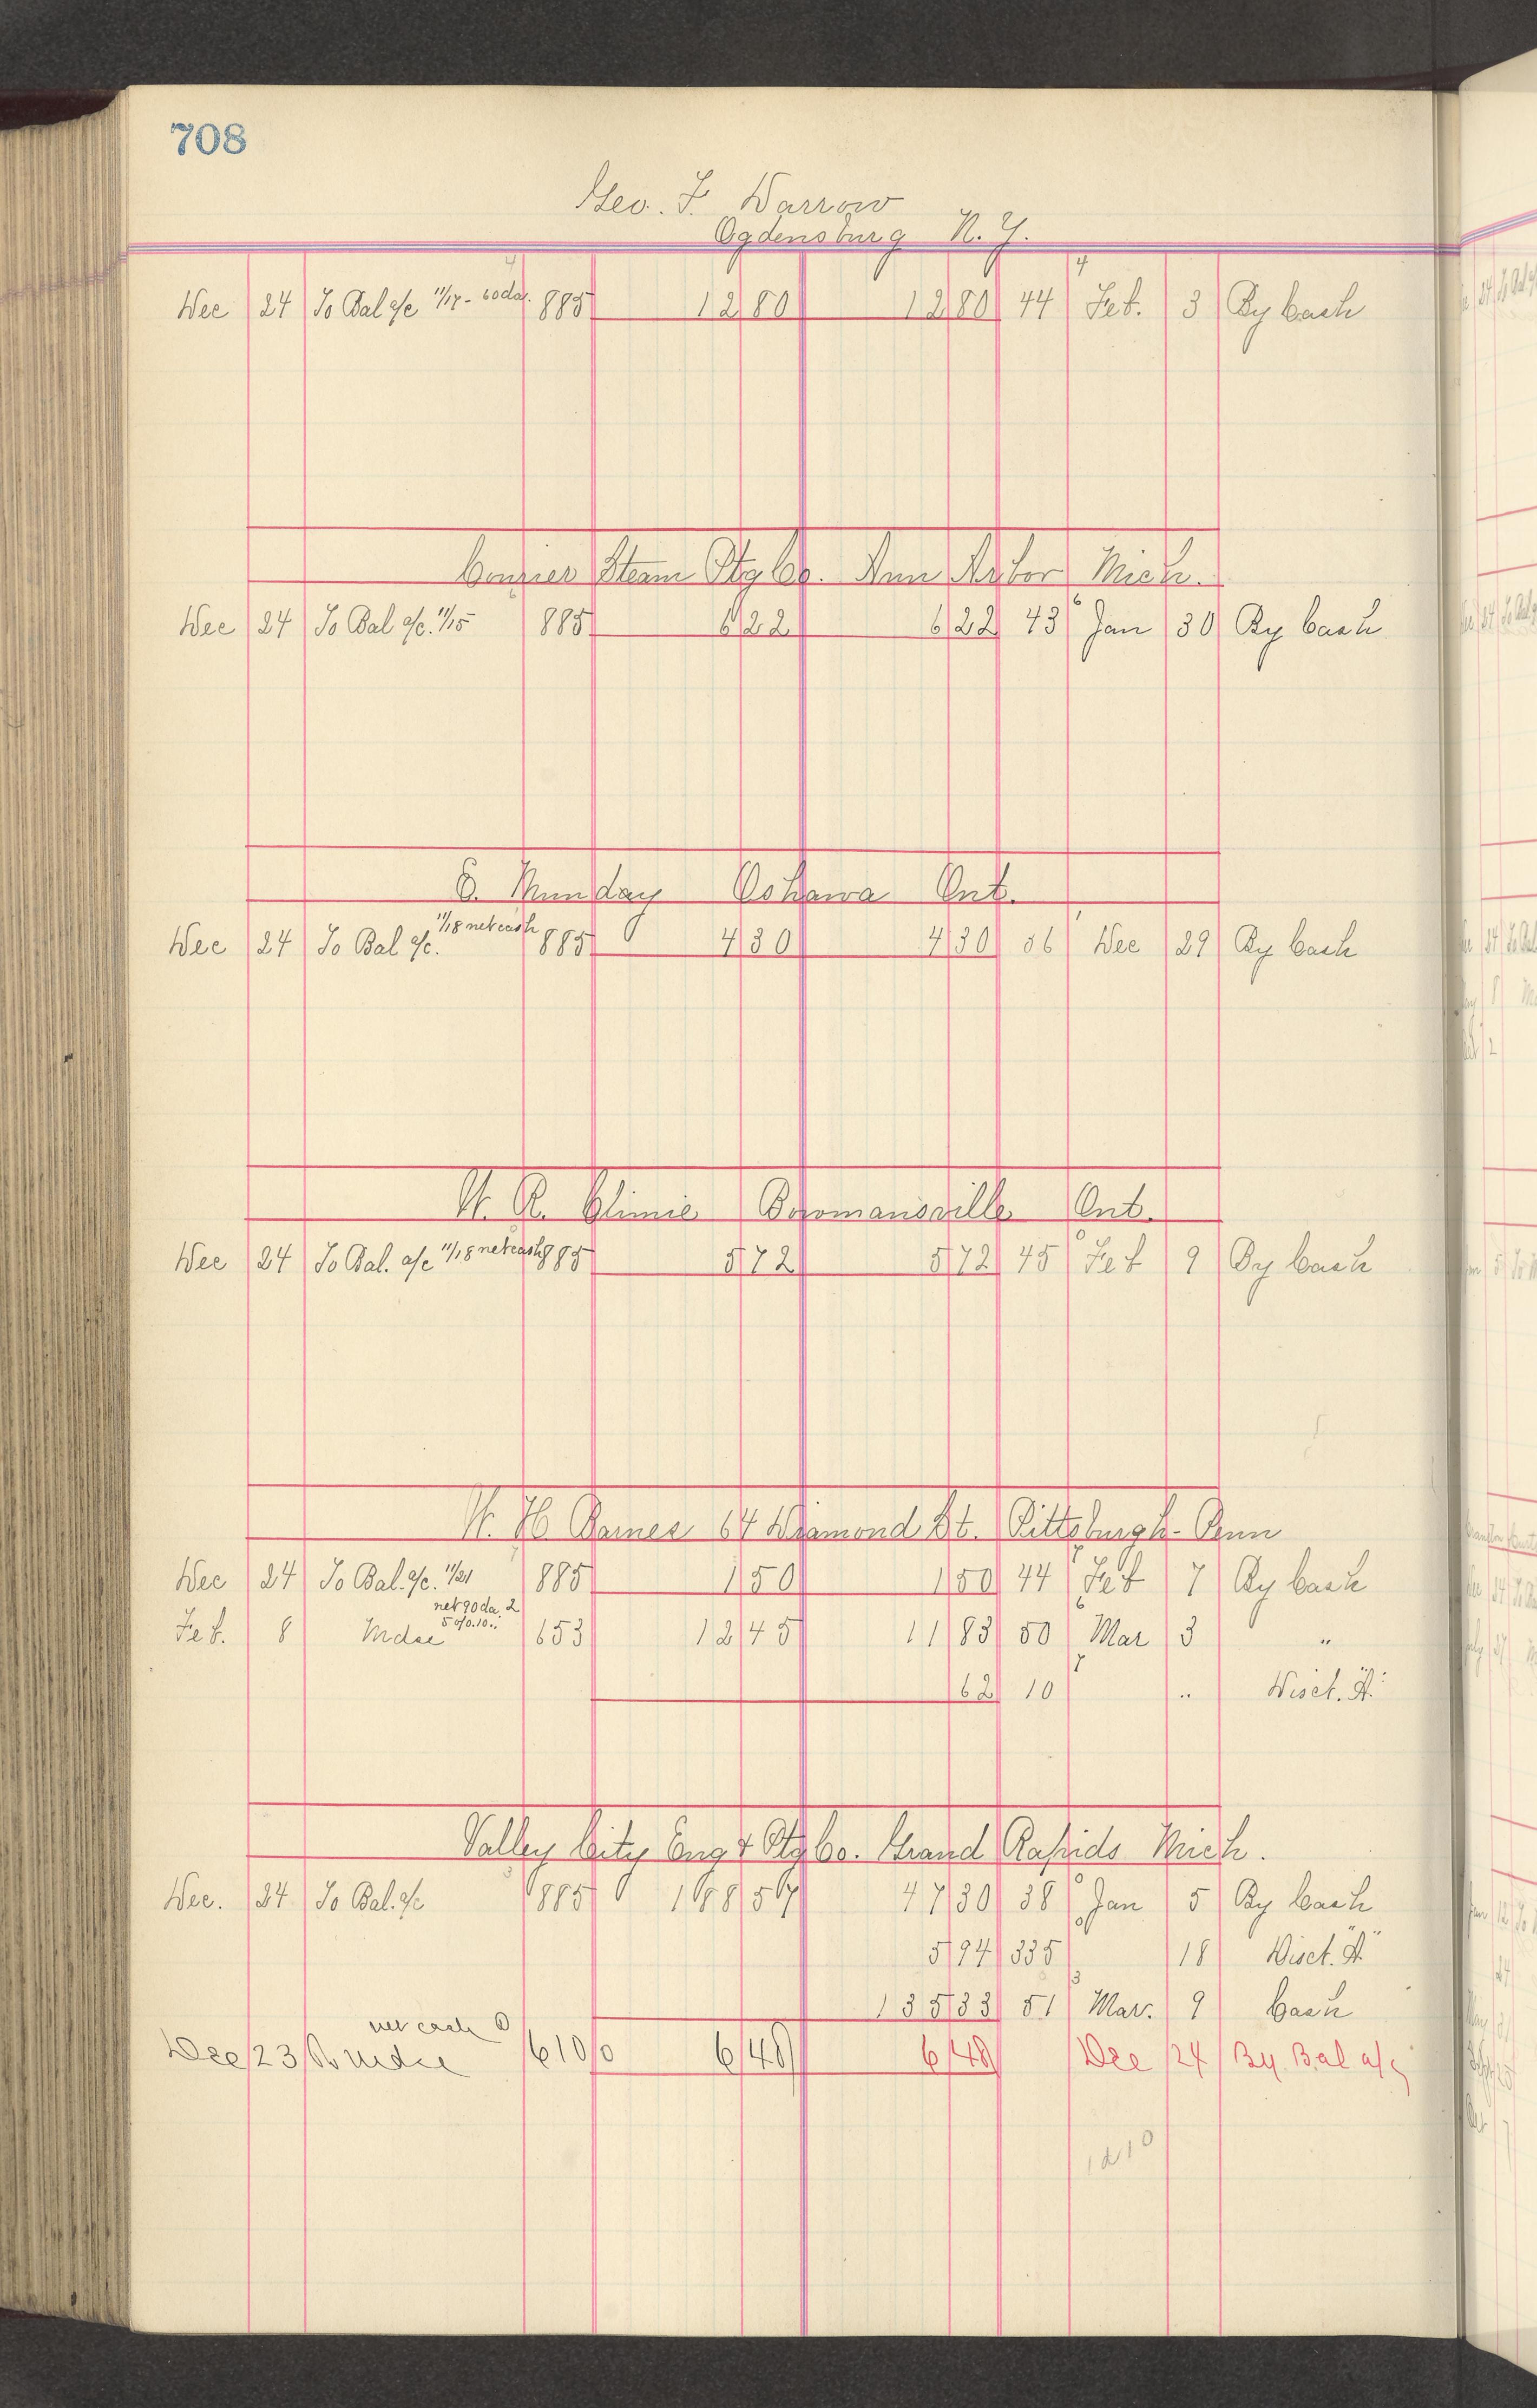 708
Geo. F. Darrow
Ogdensburg N.Y.
4 4
Dec 24 To Bal a/c 11/17 - 60 da. 885 12 80 12 80 44 Feb. 3 By Cash
Courier Steam Ptg Co. Ann Arbor Mich.
6
Dec 24 To Bal a/c. 11/15 885 6 22 6 22 43 Jan 30 By Cash
E. Munday Oshawa Ont.
11/18 net cash
Dec 24 To Bal a/c. 885 4 30 4 30 36 Dec 29 By Cash
W. R. Climie Bowmansville Ont.
Dec 24 To Bal. a/c 11/18 net cash 885 5 72 5 72 45 Feb 9 By Cash
W. H. Barnes 64 Diamond St. Pittsburgh Penn
Dec 24 To Bal. a/c. 11/21 885 1 50 1 50 44 Feb 7 By Cash
net 90 da. 2
5 0/0 10..
Feb. 8 Mdse 653 12 45 11 83 50 Mar 3 "
62 10 .. Disct. "A"
Valley City Eng & Ptg Co. Grand Rapids Mich.
Dec. 24 To Bal. a/c 885 188 57 47 30 38 Jan 5 By Cash
5 94 335 18 Disct. "A"
135 33 51 Mar. 9 Cash
net cash
Dec 23 To Mdse 610 6 48 6 48 Dec 24 By Bal a/c